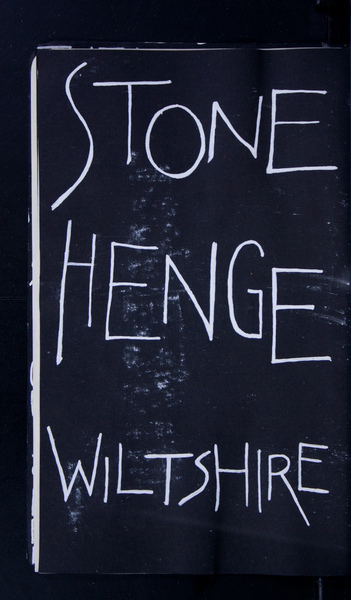 STONE
HENGE
WILTSHIRE